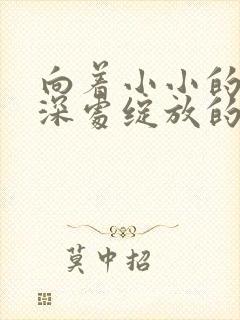 向着小小的
深处绽放的
莫中招